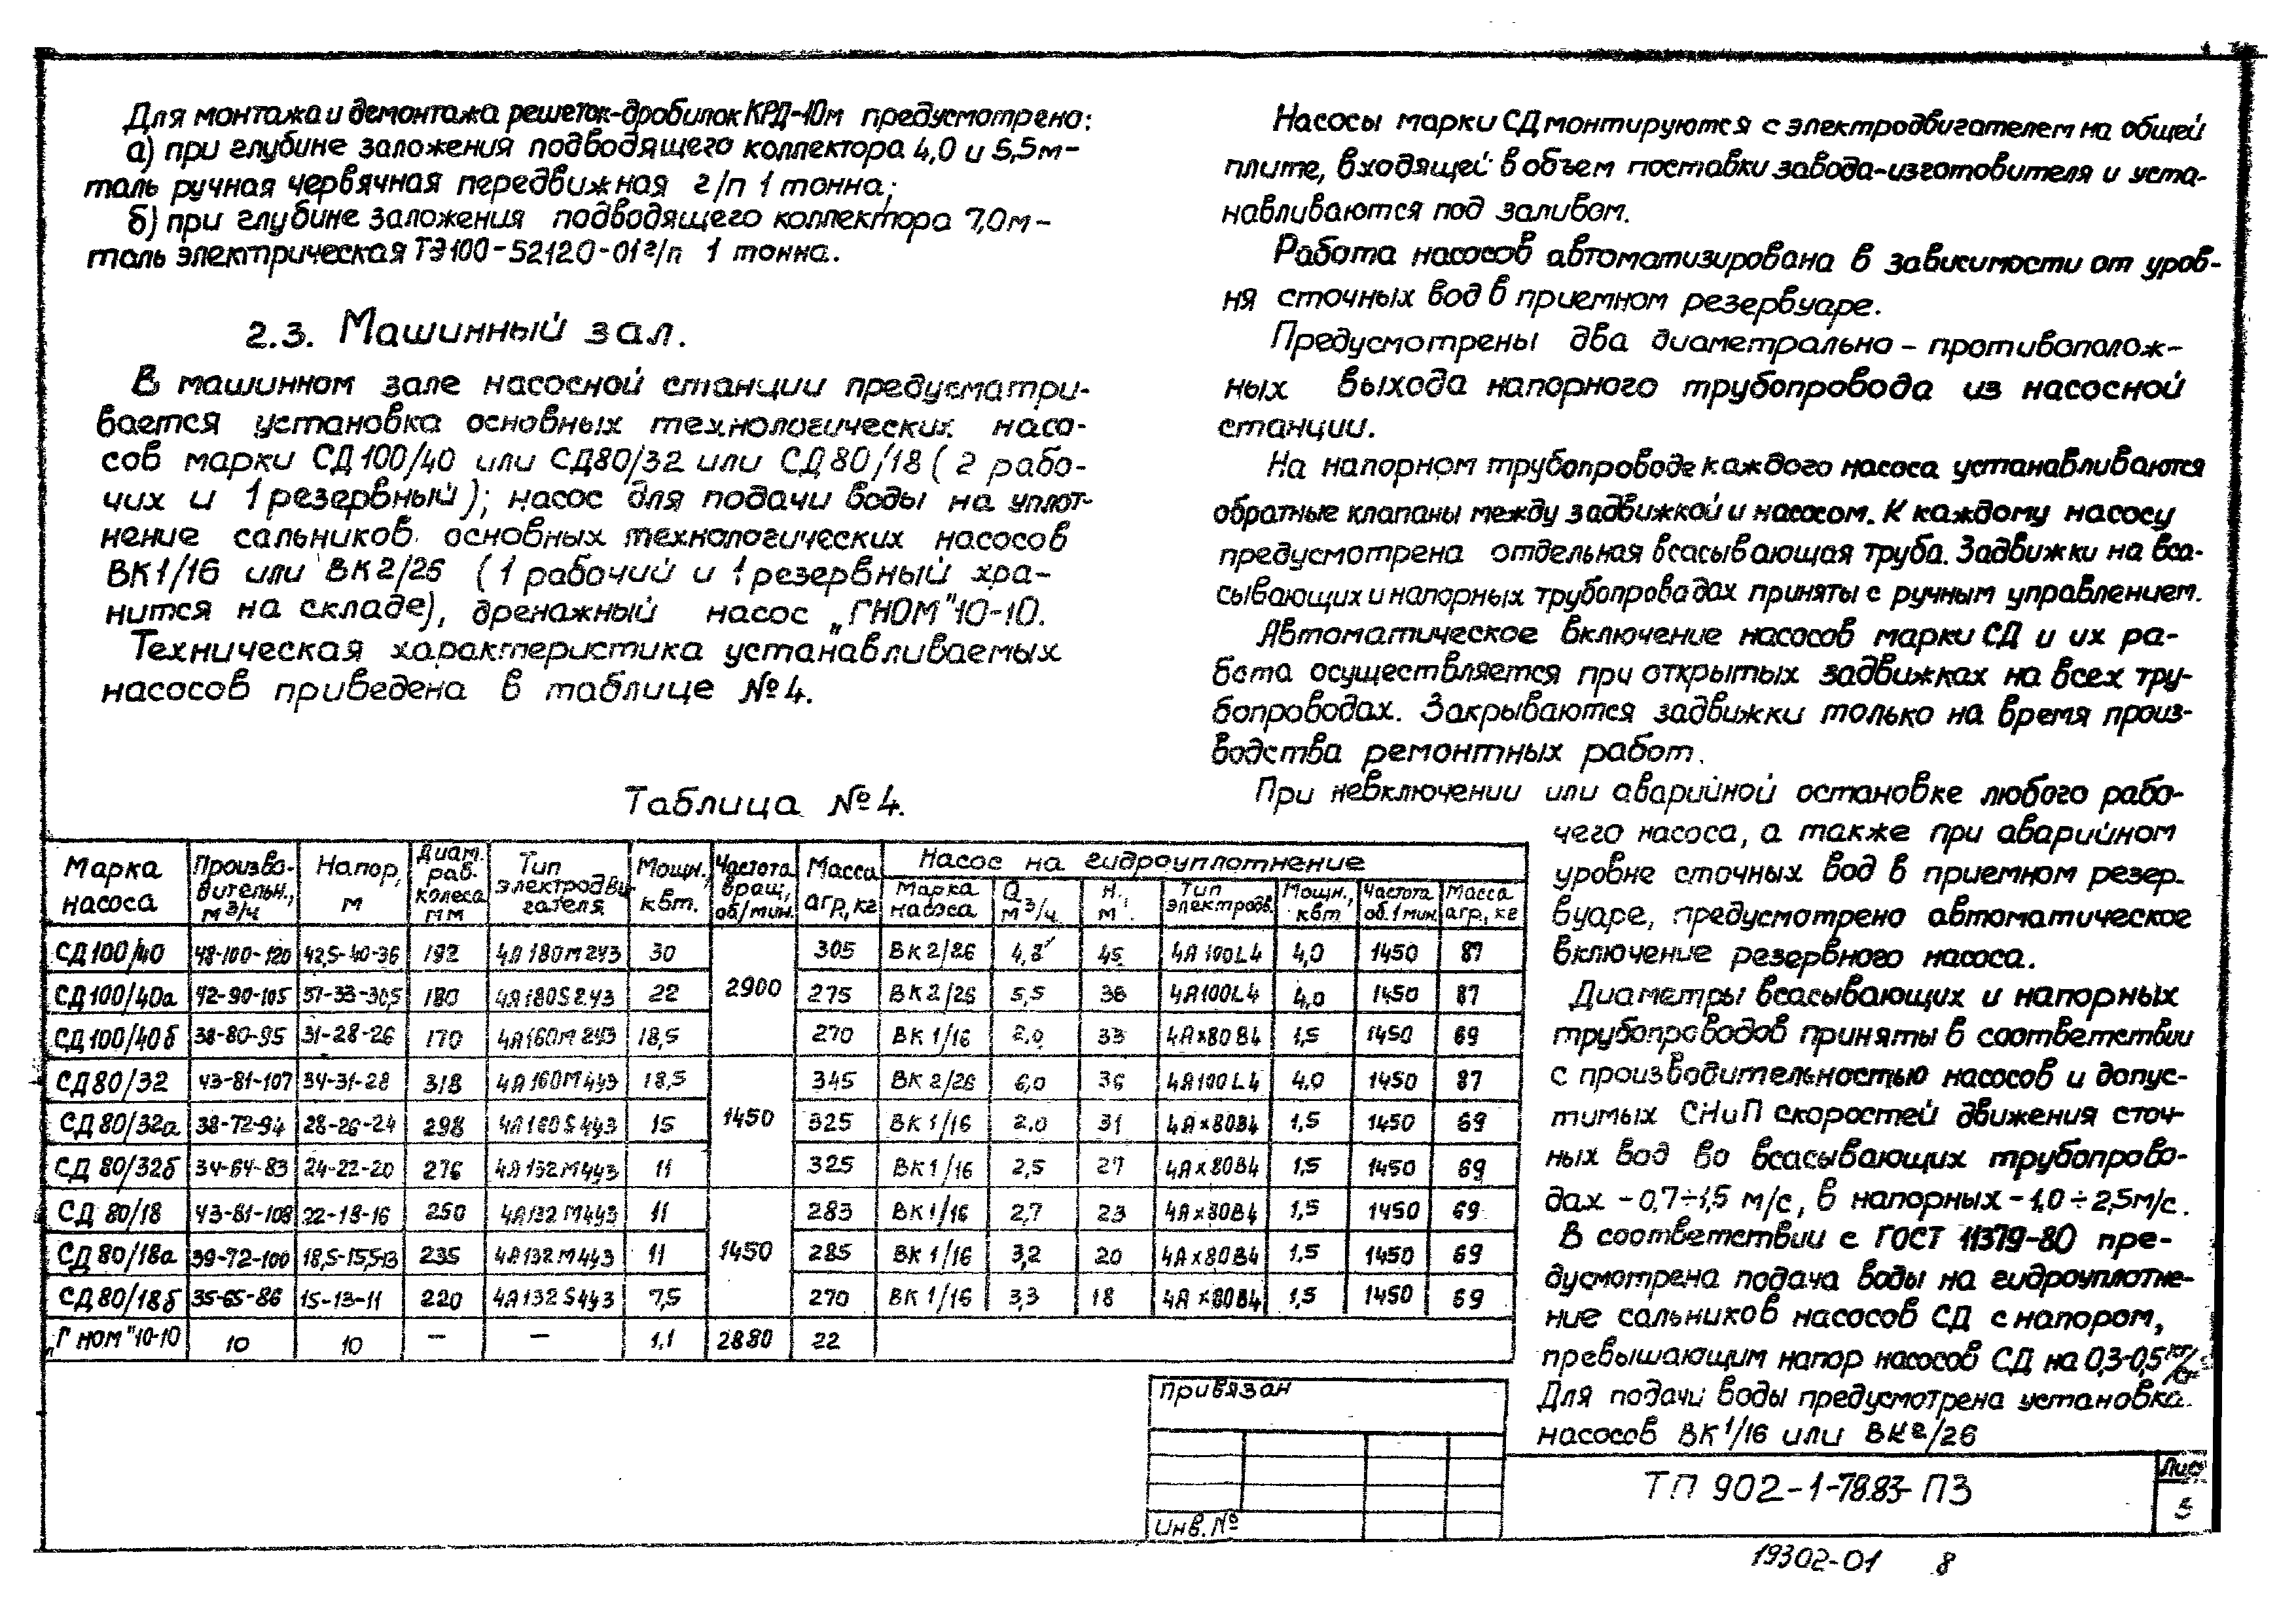 Для монтажа и демонтажа решеток-дробилок КРД-10м предусмотрено:
а) при глубине заложения подводящего коллектора 4,0 и 5,5м-
таль ручная червячная передвижная г/п 1 тонна;
б) при глубине заложения подводящего коллектора 7,0м-
таль электрическая ТЭ100-52120-01 г/п 1 тонна.
2.3. Машинный зал.
В машинном зале насосной станции предусматри-
вается установка основных технологических насо-
сов марки СД100/40 или СД80/32 или СД80/18 (2 рабо-
чих и 1 резервный); насос для подачи воды на уплот-
нение сальников основных технологических насосов
ВК1/16 или ВК2/26 (1 рабочий и 1 резервный хра-
нится на складе), дренажный насос „ГНОМ"10-10.
Техническая характеристика устанавливаемых
насосов приведена в таблице №4.
Таблица №4.
Марка насоса | Произво-дительн., м3/ч | Напор, м | Диам. раб. колеса мм | Тип электродви-гателя | Мощн., квт. | Частота вращ., об/мин. | Масса агр., кг | Насос на гидроуплотнение
Марка насоса | Q м3/ч. | Н., м. | Тип электродв. | Мощн., квт | Частота об. 1 мин. | Масса агр., кг
СД100/40 | 48-100-120 | 42,5-40-36 | 192 | 4А180М2У3 | 30 | 2900 | 305 | ВК2/26 | 4,8 | 45 | 4А100L4 | 4,0 | 1450 | 87
СД100/40а | 42-90-105 | 37-33-30,5 | 180 | 4А180S2У3 | 22 | 275 | ВК2/26 | 5,5 | 38 | 4А100L4 | 4,0 | 1450 | 87
СД100/40б | 38-80-95 | 31-28-26 | 170 | 4А160М2У3 | 18,5 | 270 | ВК1/16 | 2,0 | 33 | 4Ах80В4 | 1,5 | 1450 | 69
СД80/32 | 43-81-107 | 34-31-28 | 318 | 4А160М4У3 | 18,5 | 1450 | 345 | ВК2/26 | 6,0 | 36 | 4А100L4 | 4,0 | 1450 | 87
СД80/32а | 38-72-94 | 28-26-24 | 298 | 4А160S4У3 | 15 | 325 | ВК1/16 | 2.0 | 31 | 4Ах80В4 | 1,5 | 1450 | 69
СД80/32б | 34-64-83 | 24-22-20 | 276 | 4А132М4У3 | 11 | 325 | ВК1/16 | 2,5 | 27 | 4Ах80В4 | 1,5 | 1450 | 69
СД80/18 | 43-81-108 | 22-18-16 | 250 | 4А132М4У3 | 11 | 1450 | 283 | ВК1/16 | 2,7 | 23 | 4Ах80В4 | 1,5 | 1450 | 69
СД80/18а | 39-72-100 | 18,5-15,5-13 | 235 | 4А132М4У3 | 11 | 285 | ВК1/16 | 3,2 | 20 | 4Ах80В4 | 1.5 | 1450 | 69
СД80/18б | 35-65-86 | 15-13-11 | 220 | 4А132S4У3 | 7,5 | 270 | ВК1/16 | 3,3 | 18 | 4Ах80В4 | 1,5 | 1450 | 69
„Гном"10-10 | 10 | 10 | — | — | 1,1 | 2880 | 22
Насосы марки СД монтируются с электродвигателем на общей
плите, входящей в объем поставки завода-изготовителя и уста-
навливаются под заливом.
Работа насосов автоматизирована в зависимости от уров-
ня сточных вод в приемном резервуаре.
Предусмотрены два диаметрально-противополож-
ных выхода напорного трубопровода из насосной
станции.
На напорном трубопроводе каждого насоса устанавливаются
обратные клапаны между задвижкой и насосом. К каждому насосу
предусмотрена отдельная всасывающая труба. Задвижки на вса-
сывающих и напорных трубопроводах приняты с ручным управлением.
Автоматическое включение насосов марки СД и их ра-
бота осуществляется при открытых задвижках на всех тру-
бопроводах. Закрываются задвижки только на время произ-
водства ремонтных работ.
При невключении или аварийной остановке любого рабо-
чего насоса, а также при аварийном
уровне сточных вод в приемном резер-
вуаре, предусмотрено автоматическое
включение резервного насоса.
Диаметры всасывающих и напорных
трубопроводов приняты в соответствии
с производительностью насосов и допус-
тимых СНиП скоростей движения сточ-
ных вод во всасывающих трубопрово-
дах -0,7÷1,5 м/с, в напорных -1,0÷2,5м/с.
В соответствии с ГОСТ 11379-80 пре-
дусмотрена подача воды на гидроуплотне-
ние сальников насосов СД с напором,
превышающим напор насосов СД на 0,3-0,5
Для подачи воды предусмотрена установка
насосов ВК1/16 или ВК2/26
Привязан
Инв. №
ТП 902-1-78.83-ПЗ
Лист
5
19302-01 8